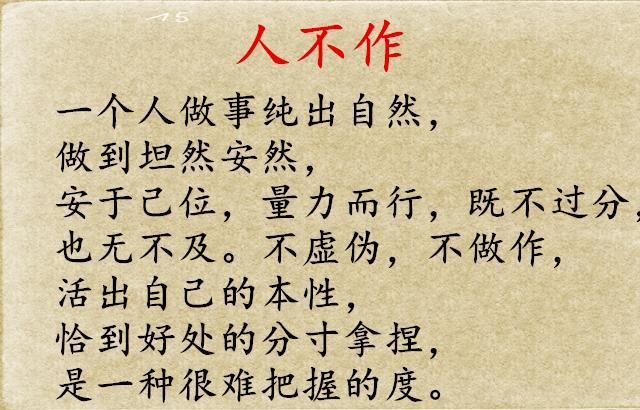 15
人不作
一个人做事纯出自然，
做到坦然安然，
安于己位，量力而行，既不过分，
也无不及。不虚伪，不做作，
活出自己的本性，
恰到好处的分寸拿捏，
是一种很难把握的度。